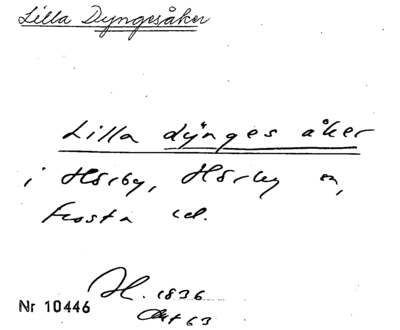 Lilla Dyngesåker
Lilla dynges åker
i Hörby, Hörby sn,
Frosta hd.
H. 1836
Akt 63
Nr 10446